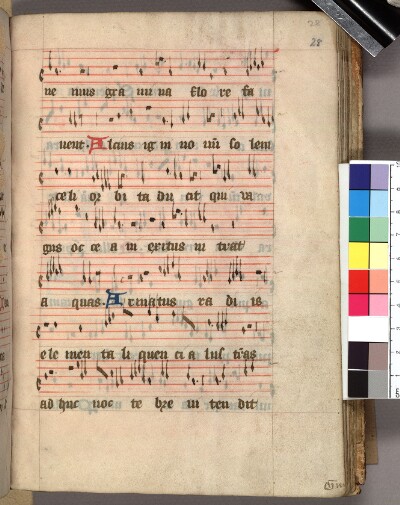 28
28
ne nius gra mi na flo re fa
uent. Alcius ig ni no mi so lem
celi or bi ta du cit qui va
gus oc ce a ni exitus in trat
a quas. Armatus ra di is
ele men ta li quen ci a lus tras
ad huc noc te bre in ten dit